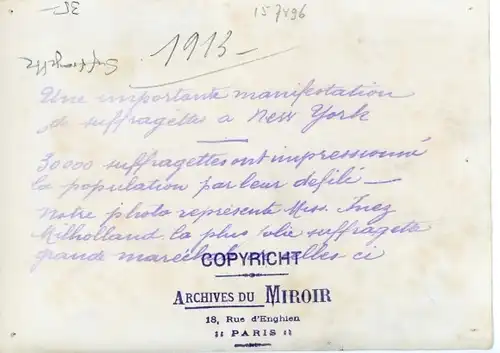 35
157496
1913 —
Suffragette
Une importante manifestation
de suffragettes a New York
30000 suffragettes ont impressionné
la population par leur defilé —
Notre photo représente Miss. Inez
Milholland la plus jolie suffragette
grande maréchale celles ci
COPYRICHT
ARCHIVES DU MIROIR
18, Rue d'Enghien
PARIS